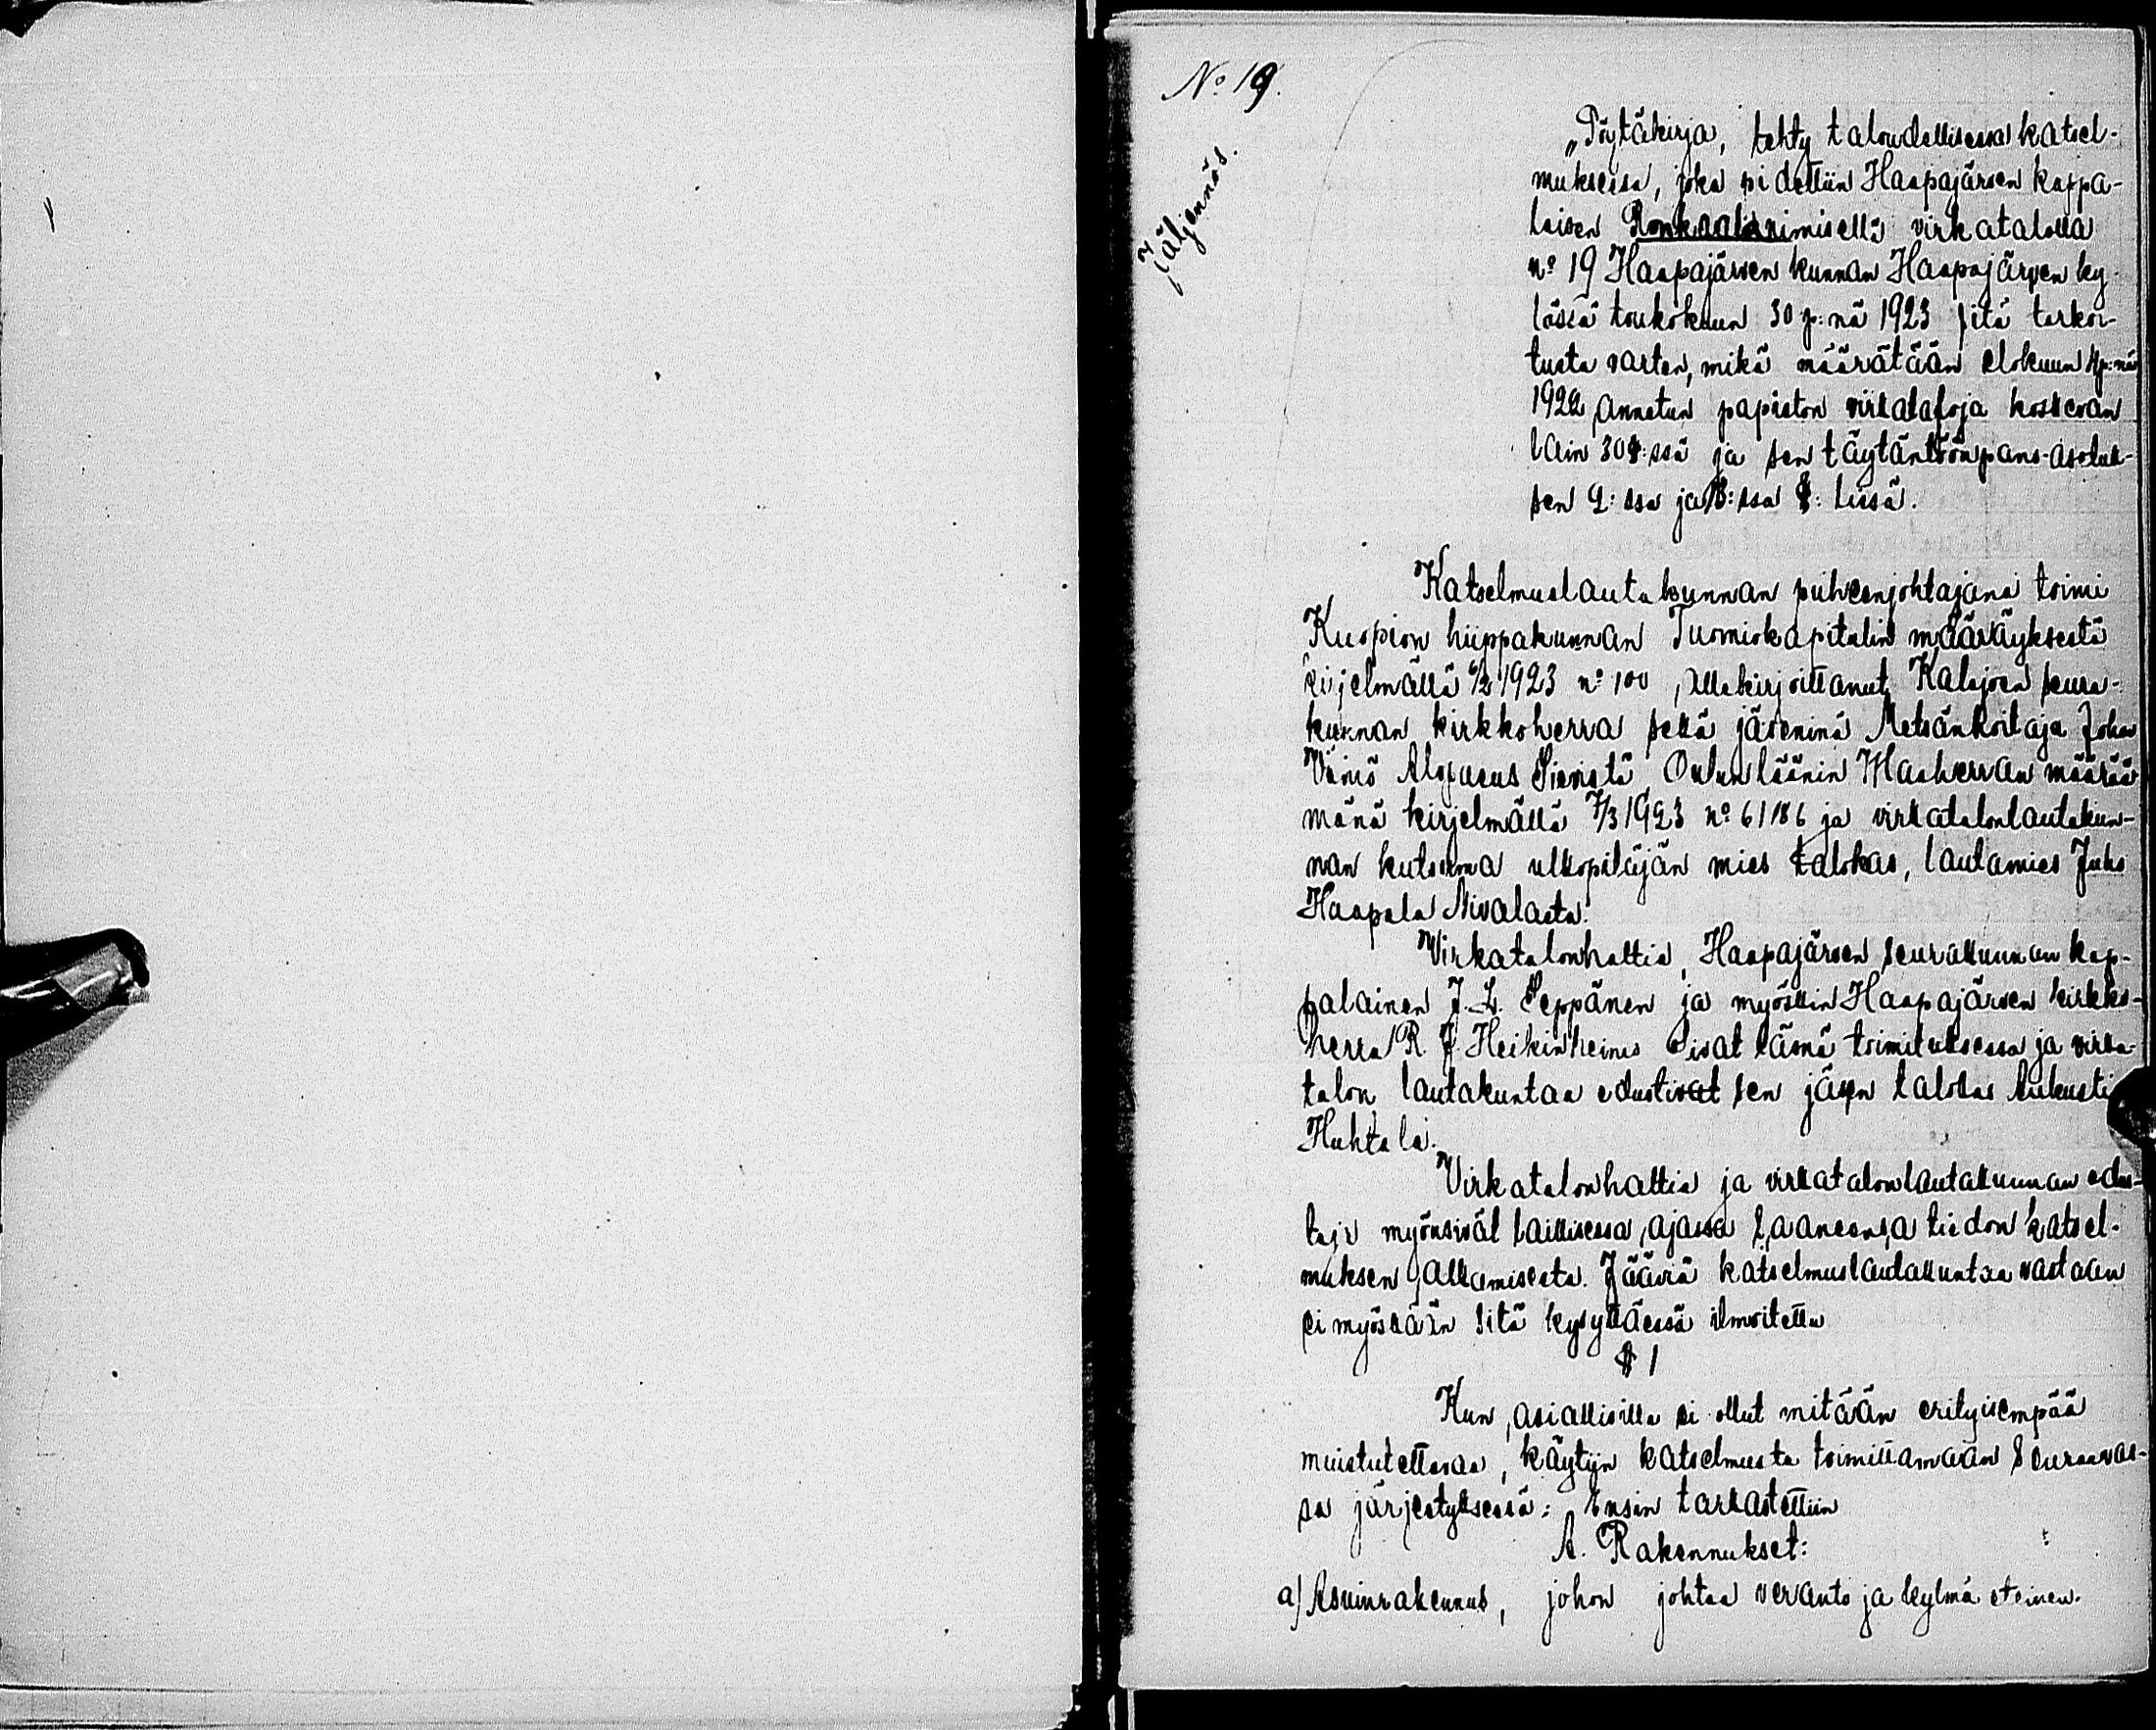 No 19.
Jäljennös.
„Pöytäkirja, tehty taloudellisessa katsel-
muksessa, joka pidettiin Haapajärven kappa-
laisen Ronkaala nimisellä virkatalolla
no 19 Haapajärven kunnan Haapajärven ky-
lässä toukokuun 30 p:nä 1923 sitä tarkoi-
tusta varten, mikä määrätään elokuun p:nä
1922 annetun papiston virkataloja koskevan
lain 30 §:ssä ja sen täytäntöönpano-asetuk-
sen 2:ssa ja :ssa §:ssä.
Katselmuslautakunnan puheenjohtajana toimi
Kuopion hiippakunnan Tuomiokapitulin määräyksestä
kirjelmällä 1923 no 100, allekirjoittanut Kalajoen seura-
kunnan kirkkoherra sekä jäseninä Metsänhoitaja Johan
Väinö Alopaeus Sievistä Oulun läänin Maaherran määrää-
mänä kirjelmällä 7/3 1923 no 61186 ja virkatalonlautakun-
nan kutsuma ulkopitäjän mies talokas, lautamies Juho
Haapala Nivalasta.
Virkatalonhaltia, Haapajärven seurakunnan kap-
palainen J. L. Seppänen ja myöskin Haapajärven kirkko-
herra R. J. Heikinheimo olivat läsnä toimituksessa ja virka-
talon lautakuntaa edustivat sen jäsen talokas Aukusti
Huhtala.
Virkatalonhaltia ja virkatalonlautakunnan edus-
taja myönsivät laillisessa ajassa saaneensa tiedon katsel-
muksen alkamisesta. Jääviä katselmuslautakuntaa vastaan
ei myöskään sitä kysyttäessä ilmoitettu
§ 1
Kun asiallisilla ei ollut mitään erityisempää
muistutettavaa, käytiin katselmusta toimittamaan seuraavas-
sa järjestyksessä: Ensin tarkastettiin
A. Rakennukset:
a) Asuinrakennus, johon johtaa veranto ja kylmä eteinen.